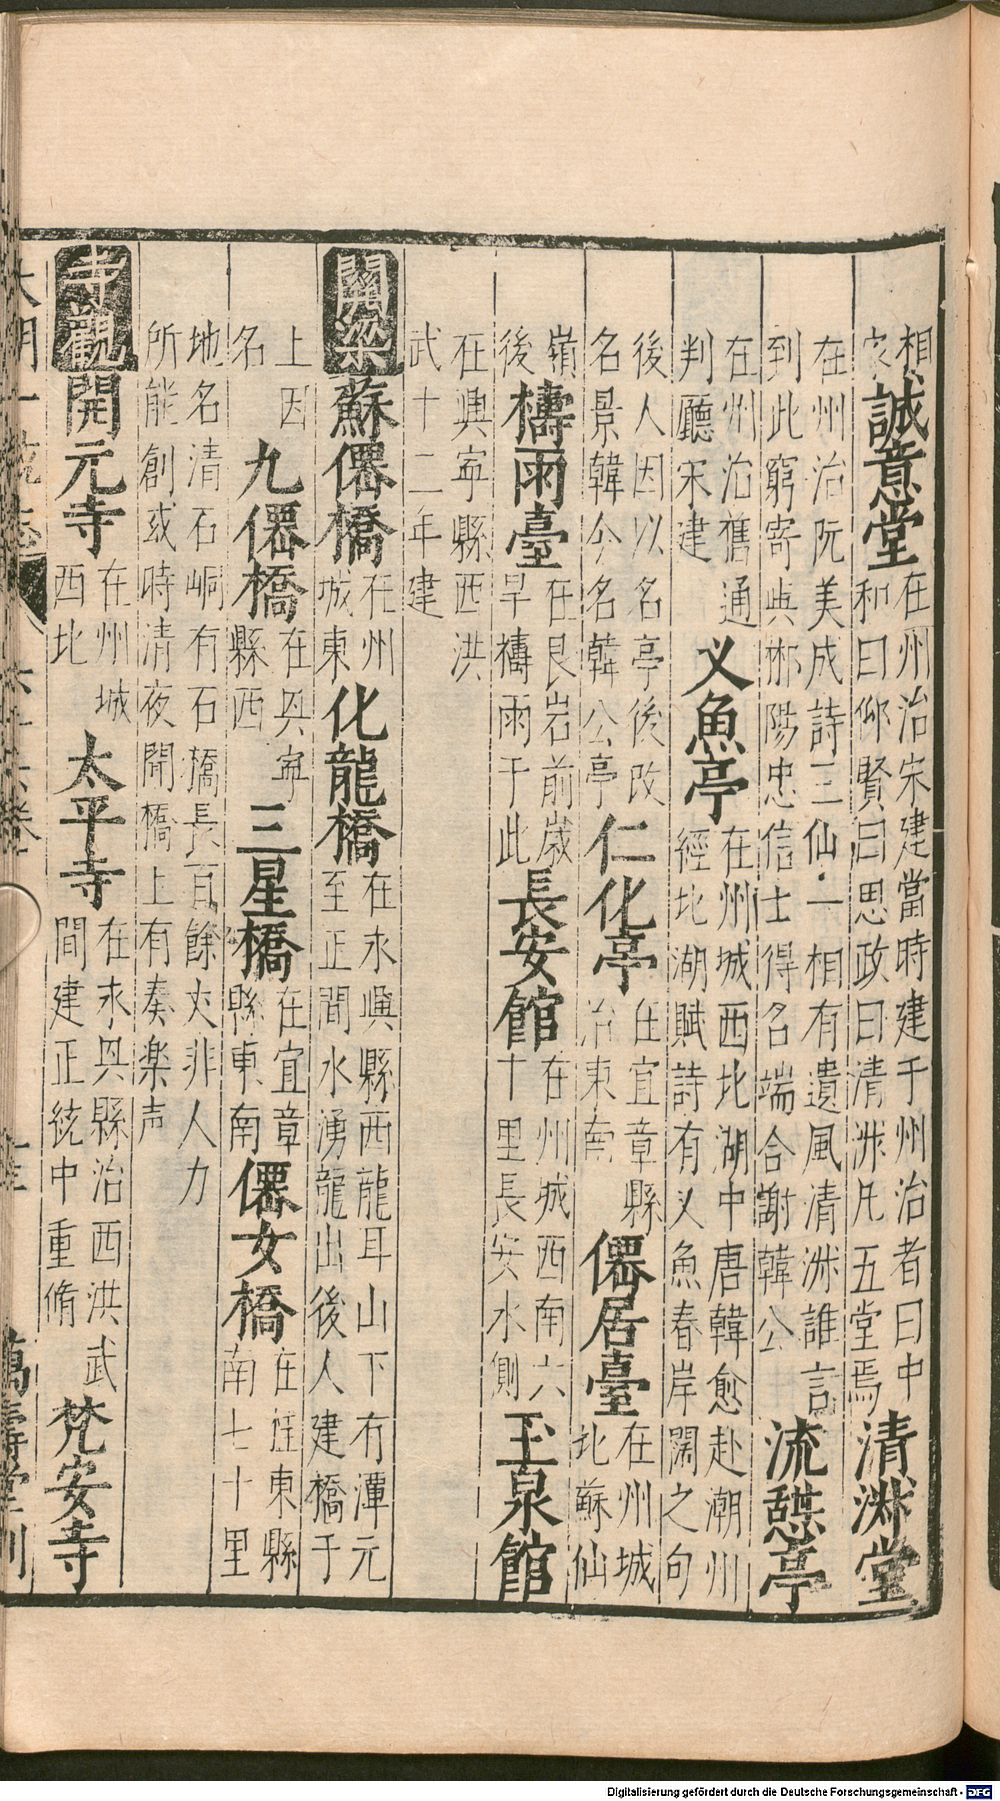 相
家
誠意堂
在州治宋建當時建于州治者曰中
和曰仰賢曰思政曰清淑凡五堂焉
清淑堂
在州治阮美成詩三仙一相有遺風清淑誰言
到此窮寄與郴陽忠信士得名端合謝韓公
流憩亭
在州治舊通
判廳宋建
义魚亭
在州城西北湖中唐韓愈赴潮州
經北湖賦詩有义魚春岸闊之句
後人因以名亭後改
名景韓今名韓公亭
仁化亭
在宜章縣
治東南
僊居臺
在州城
北蘇仙
嶺
後
禱雨臺
在艮岩前歲
旱禱雨于此
長安館
在州城西南六
十里長安水側
玉泉館
在興寧縣西洪
武十二年建
關梁
蘇僊橋
在州
城東
化龍橋
在永興縣西龍耳山下有潭元
至正間水湧龍出後人建橋于
上因
名
九僊橋
在興寧
縣西
三星橋
在宜章
縣東南
僊女橋
在桂東縣
南七十里
地名清石峒有石橋長百餘丈非人力
所能創或時清夜聞橋上有奏樂声
寺觀
開元寺
在州城
西北
太平寺
在永興縣治西洪武
間建正統中重脩
梵安寺
大明一統志
萬壽堂刊
Digitalisierung gefördert durch die Deutsche Forschungsgemeinschaft - DFG